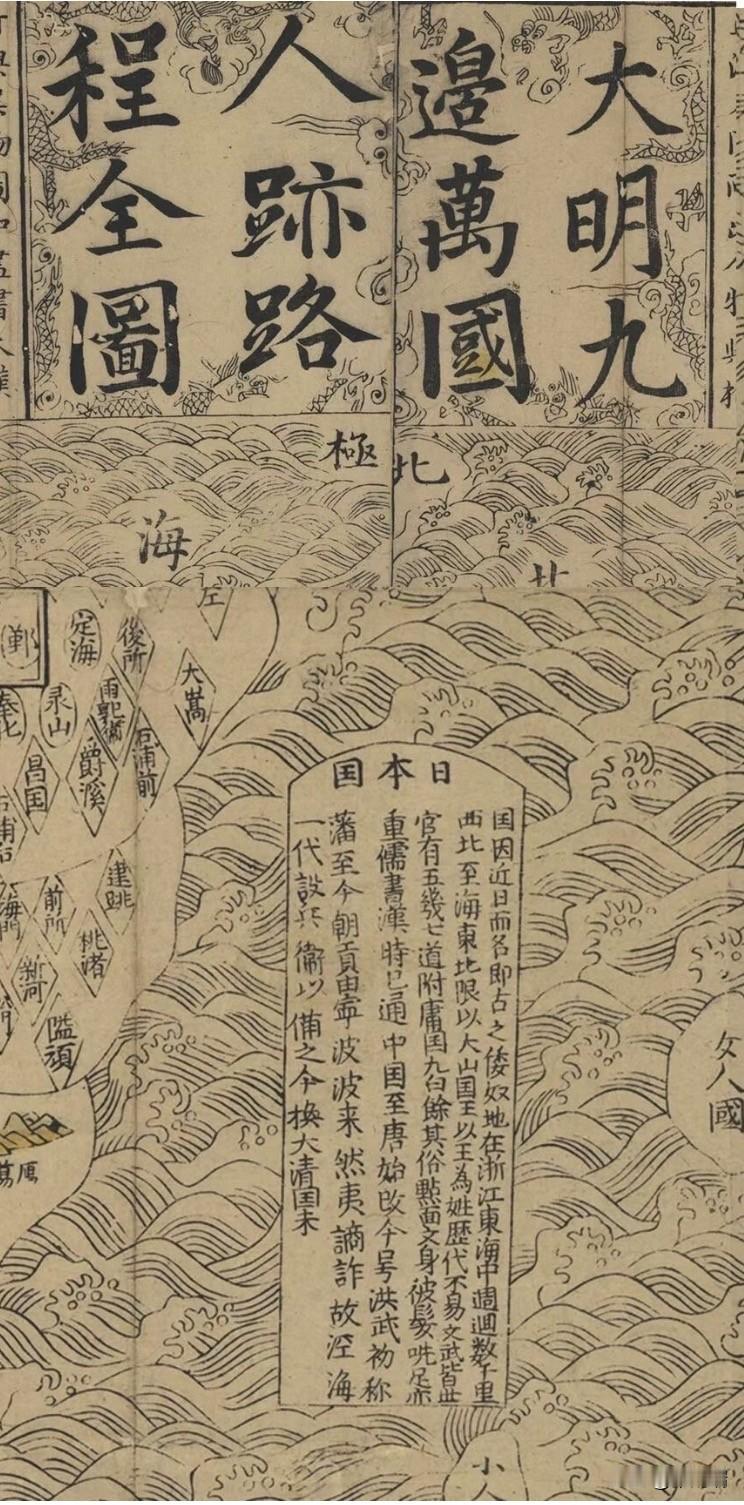 大明九
邊萬國
人跡路
程全圖
北極
海
日本国
国因近日而名即占之倭奴地在浙江東海中週廻数千里
西北至海東北限以大山国王以王為姓歷代不易文武皆世
官有五畿七道附庸国九白餘其俗㸃面文身被髮跣足亦
重儒書漢時已通中国至唐始改今号洪武初称
藩至今朝貢由寧波波来然夷譎詐故沿海
一代設兵衞以備之今換大清国未
女人國
小人
左
後所
定海
鄞
大嵩
雨郭衞
㚑山
奉化
石浦前
爵溪
昌国
連跳
前所
海門
桃渚
新河
隘頑